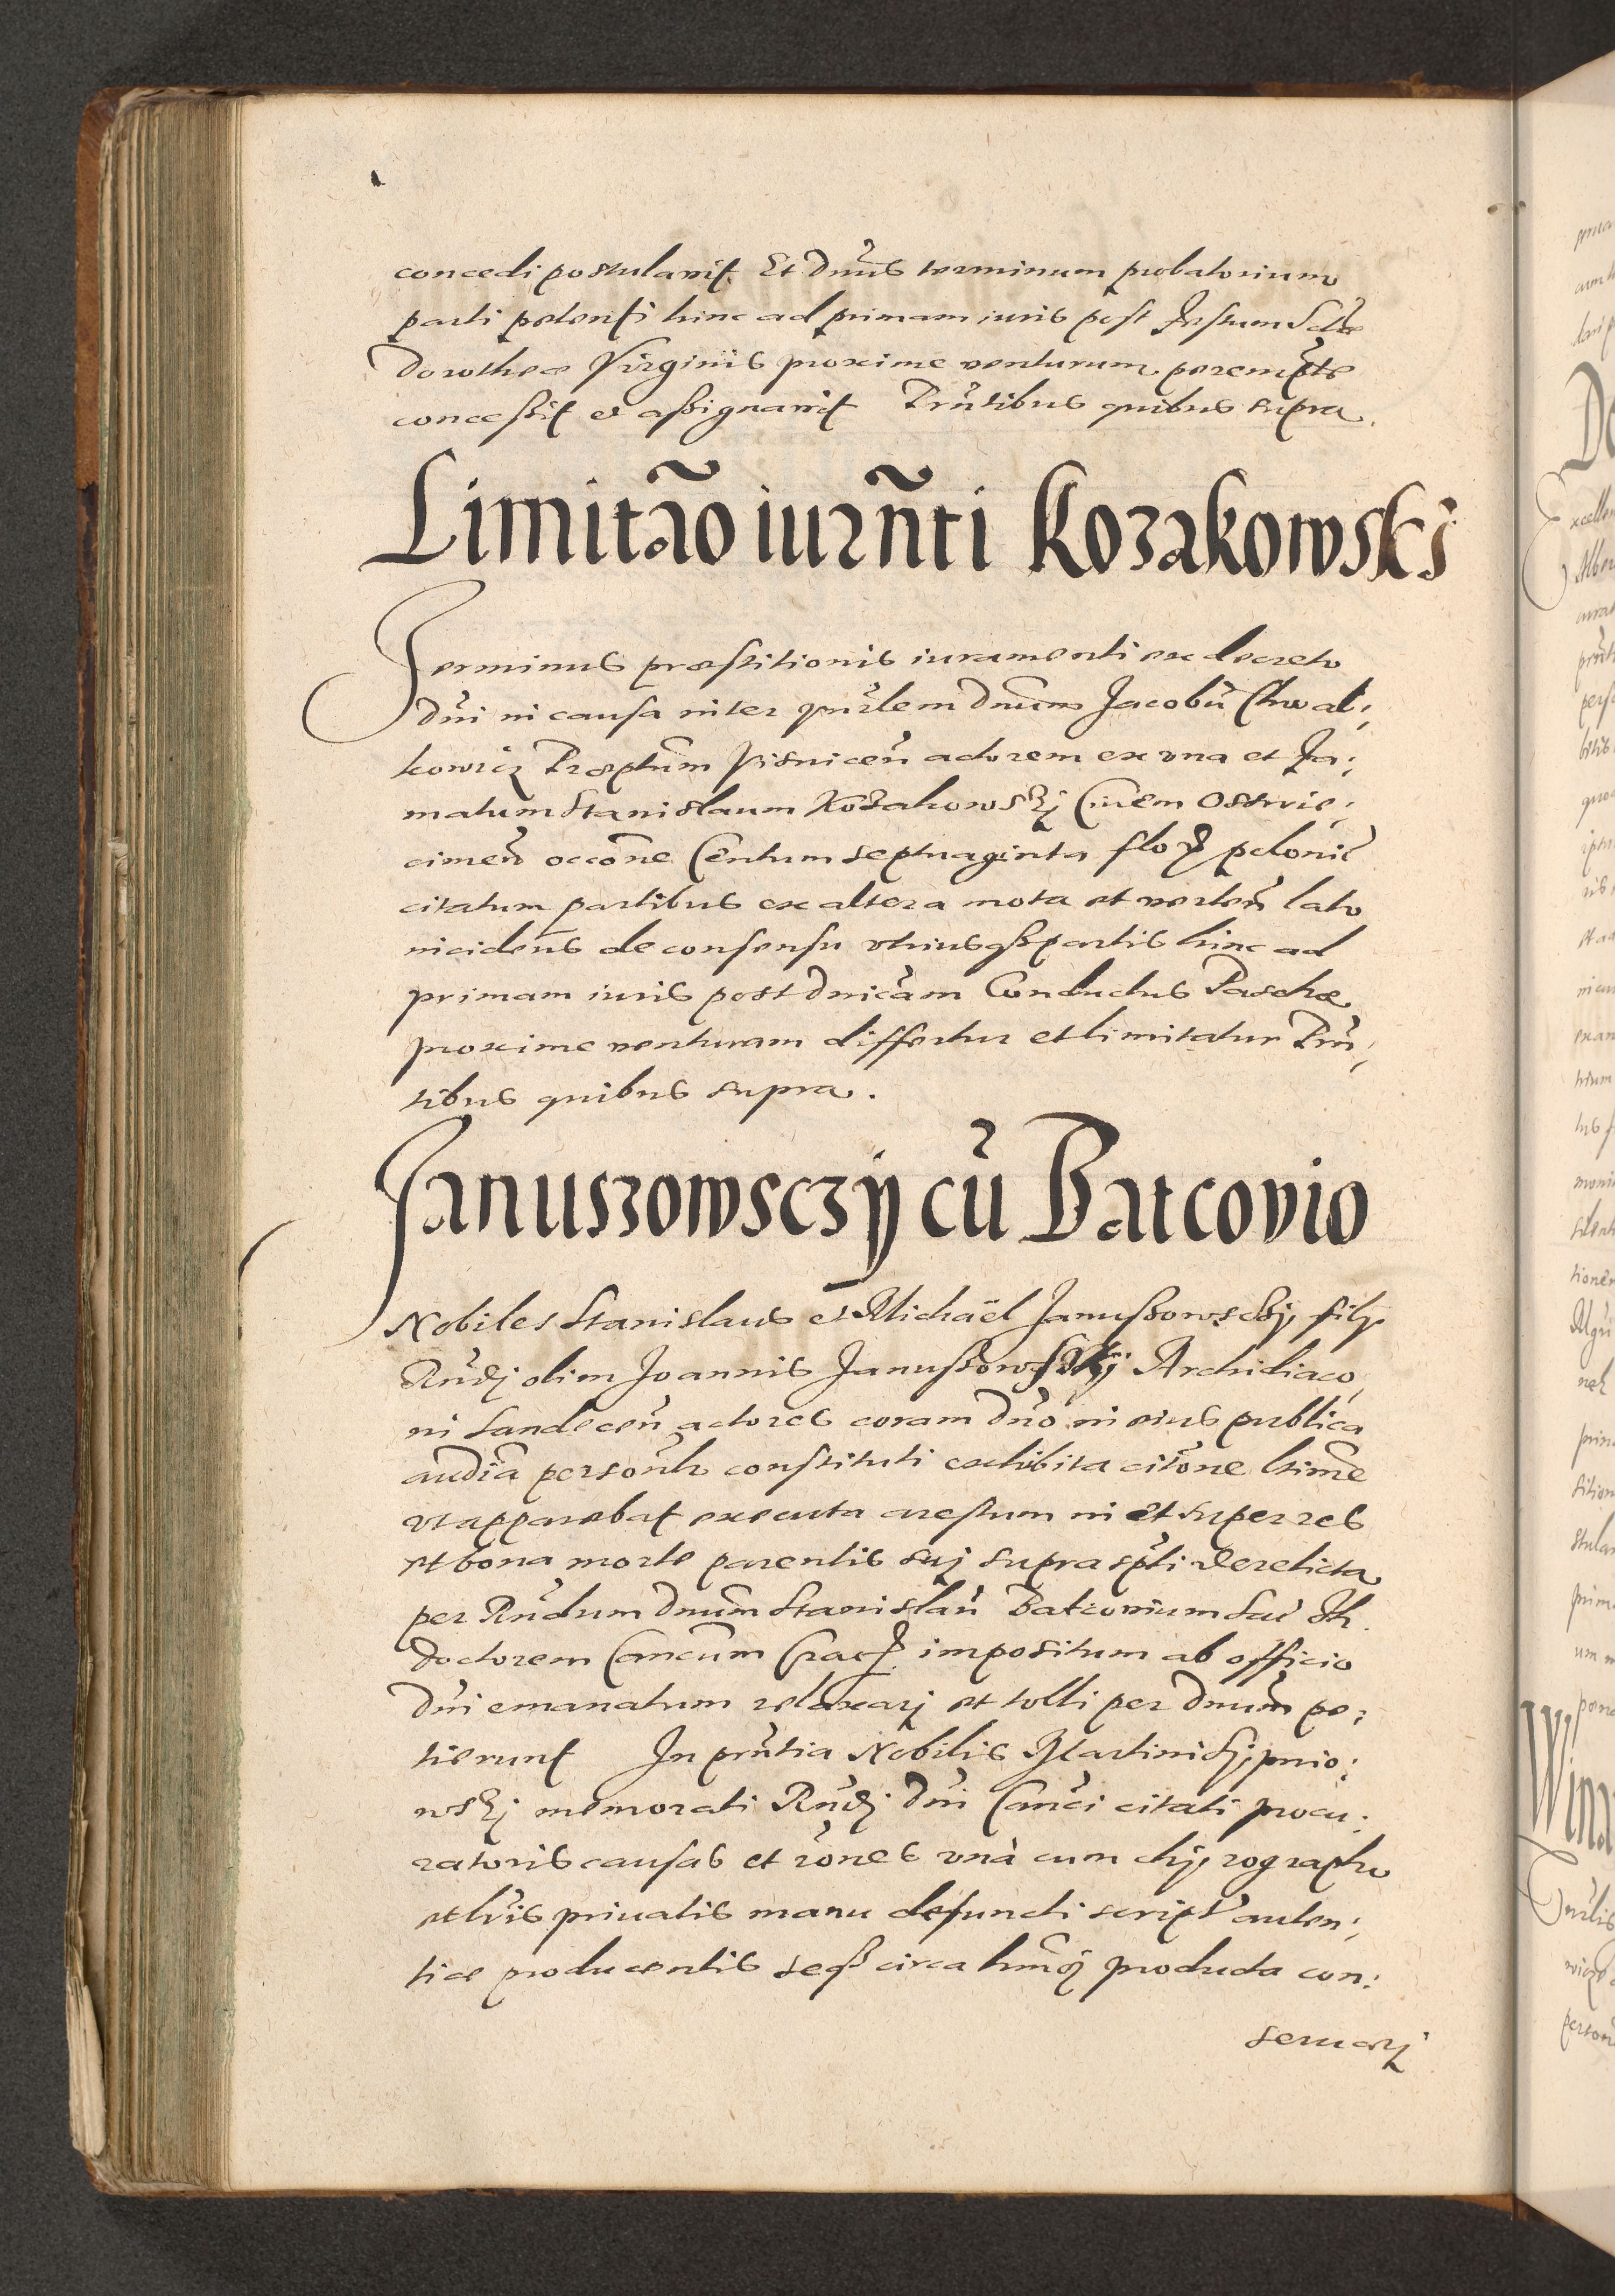 concedi postulavit. Et Dnūs terminum probatorium
parti petenti hinc ad primam iuris post Festum Sctæ
Dorotheæ Virginis proxime venturum perempte
concessit et assignavit Prūtibus quibus supra.
Limitāo iurñti Kozakowski
Terminus præstitionis iuramenti ex decreto
Dñi in causa inter Dnum Jacobū Chwal;
kowicz Præptum Visnicen̄ actorem ex una et Fa;
matum Stanislaum Kozakowskj Civem Osswie;
cimen̄ occōne Centum septuaginta flor polonic̄
citatum partibus ex altera mota et verten̄ lato
incidens de consensu utriusq partis hinc ad
primam iuris post Dnicam Conductus Paschæ
proxime venturam differtur et limitatur Prn̄;
tibus quibus supra.
Januszowsczÿ cū Batcovio
Nobiles Stanislaus et Michaël Janussowsckÿ filÿ
Rn̄dj olim Joannis Janussowskÿ Archidiaco,
ni Sandecen̄ actores coram Dño in eius publica
audīa personlr constituti exhibita citōne ltime
ut apparebat executa arestum in et super res
et bona morte parentis suj supraspti derelicta
per Rn̄dum Dnūm Stanislaū Batcovium Sac Th.
doctorem Cancum Crac impositum ab officio
Dñi emanatum relaxarj et tolli per Dnūm pe;
tierunt In prn̄tia Nobilis Martini
wskj memorati Rn̄dj Dñi Canci citati procu;
ratoris causas et rōnes unà cum chÿrographo
et lris privatis manu defuncti script auten;
tice producentis seq circa hmōj producta con:
seruarj